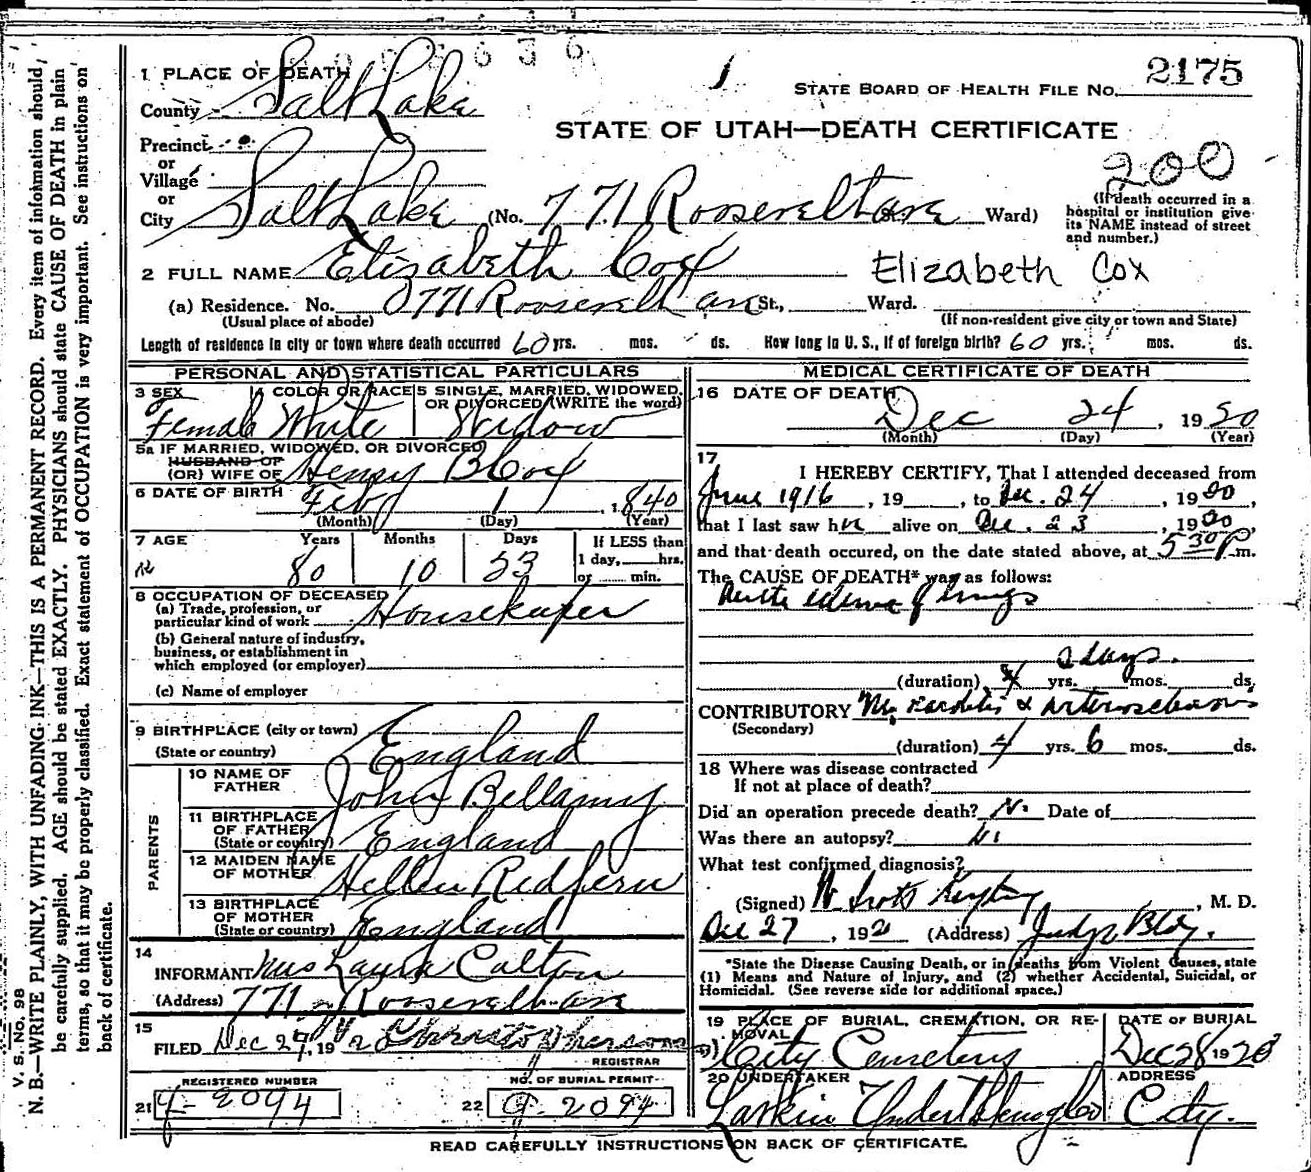 1 PLACE OF DEATH
County Salt Lake
STATE BOARD OF HEALTH FILE NO. 2175
STATE OF UTAH—DEATH CERTIFICATE
200
Precinct
or
Village
or
City Salt Lake (No. 771 Roosevelt ave Ward)
(If death occurred in a hospital or institution give its NAME instead of street and number.)
2 FULL NAME Elizabeth Cox Elizabeth Cox
(a) Residence. No. 771 Roosevelt ave St., Ward.
(Usual place of abode) (If non-resident give city or town and State)
Length of residence in city or town where death occurred 60 yrs. mos. ds. How long in U. S., if of foreign birth? 60 yrs. mos. ds.
PERSONAL AND STATISTICAL PARTICULARS
3 SEX Female
4 COLOR OR RACE White
5 SINGLE, MARRIED, WIDOWED, OR DIVORCED (WRITE the word) Widow
5a IF MARRIED, WIDOWED, OR DIVORCED
HUSBAND OF
(OR) WIFE OF Henry B Cox
6 DATE OF BIRTH Feb 1, 1840
(Month) (Day) (Year)
7 AGE Years Months Days If LESS than
80 10 23 1 day, hrs.
or min.
8 OCCUPATION OF DECEASED
(a) Trade, profession, or
particular kind of work Housekeeper
(b) General nature of industry,
business, or establishment in
which employed (or employer)
(c) Name of employer
9 BIRTHPLACE (city or town)
(State or country) England
PARENTS
10 NAME OF
FATHER John Bellamy
11 BIRTHPLACE
OF FATHER
(State or country) England
12 MAIDEN NAME
OF MOTHER Hellen Redfern
13 BIRTHPLACE
OF MOTHER
(State or country) England
14
INFORMANT Mrs Laura Calton
(Address) 771 Roosevelt ave
15
FILED Dec 27, 19 20
REGISTRAR
REGISTERED NUMBER
21 2094
NO. OF BURIAL PERMIT
22 2094
MEDICAL CERTIFICATE OF DEATH
16 DATE OF DEATH
Dec 24, 1920
(Month) (Day) (Year)
17
I HEREBY CERTIFY, That I attended deceased from
June 1916, 19, to Dec. 24, 1920,
that I last saw her alive on Dec. 23, 1920
and that death occured, on the date stated above, at 5 30 P m.
The CAUSE OF DEATH* was as follows:
Acute edema of lungs
2 days.
(duration) yrs. mos. ds.
CONTRIBUTORY Myocarditis & Arteriosclerosis
(Secondary)
(duration) 4 yrs. 6 mos. ds.
18 Where was disease contracted
If not at place of death?
Did an operation precede death? No Date of
Was there an autopsy? No
What test confirmed diagnosis?
(Signed) , M. D.
Dec 27, 192 (Address) Judge Bldg.
*State the Disease Causing Death, or in deaths from Violent Causes, state
(1) Means and Nature of Injury, and (2) whether Accidental, Suicidal, or
Homicidal. (See reverse side for additional space.)
19 PLACE OF BURIAL, CREMATION, OR REMOVAL
City Cemetery
DATE OF BURIAL
Dec 28 1920
20 UNDERTAKER
Larkin Undertaking Co
ADDRESS
City.
READ CAREFULLY INSTRUCTIONS ON BACK OF CERTIFICATE.
V. S. No. 98
N. B.—WRITE PLAINLY, WITH UNFADING INK—THIS IS A PERMANENT RECORD. Every item of information should
be carefully supplied. AGE should be stated EXACTLY. PHYSICIANS should state CAUSE OF DEATH in plain
terms, so that it may be properly classified. Exact statement of OCCUPATION is very important. See instructions on
back of certificate.